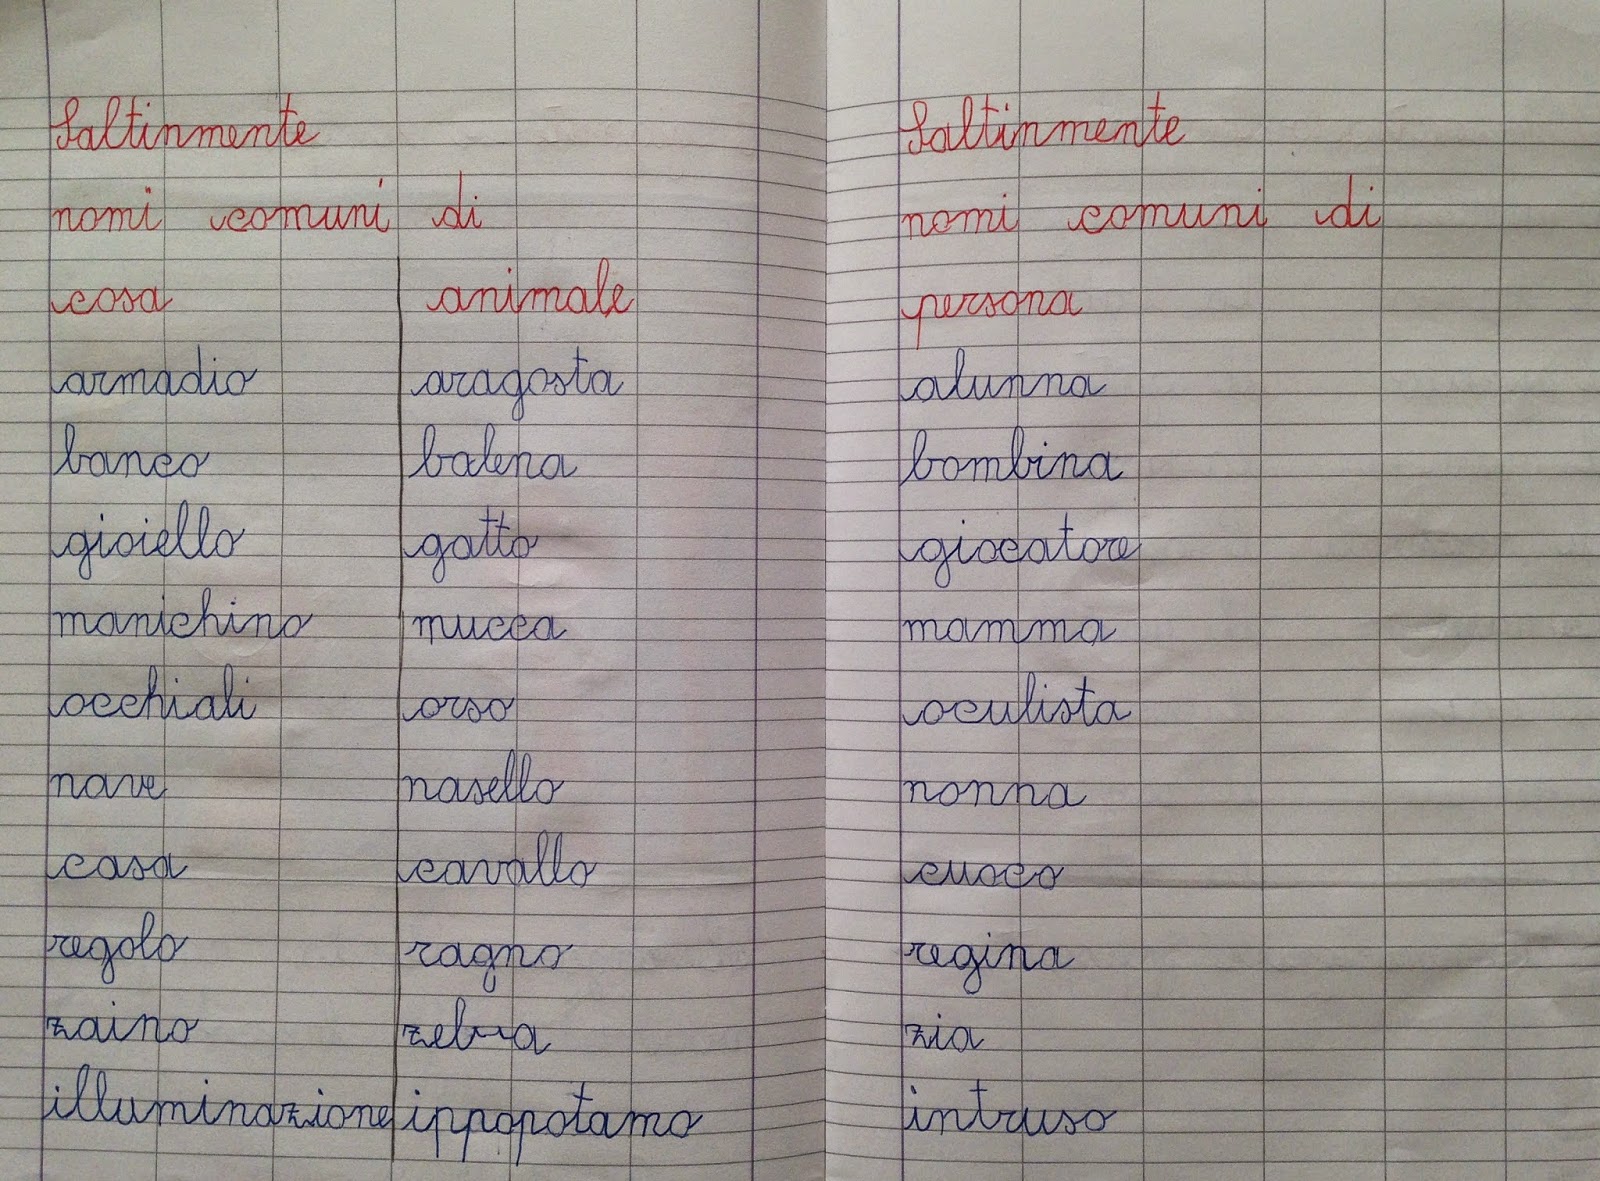 Saltinmente
nomi comuni di
cosa animale
armadio aragosta
banco balena
gioiello gatto
manichino mucca
occhiali orso
nave nasello
casa cavallo
regolo ragno
zaino zebra
illuminazione ippopotamo
Saltinmente
nomi comuni di
persona
alunna
bambina
giocatore
mamma
oculista
nonna
cuoco
regina
zia
intruso